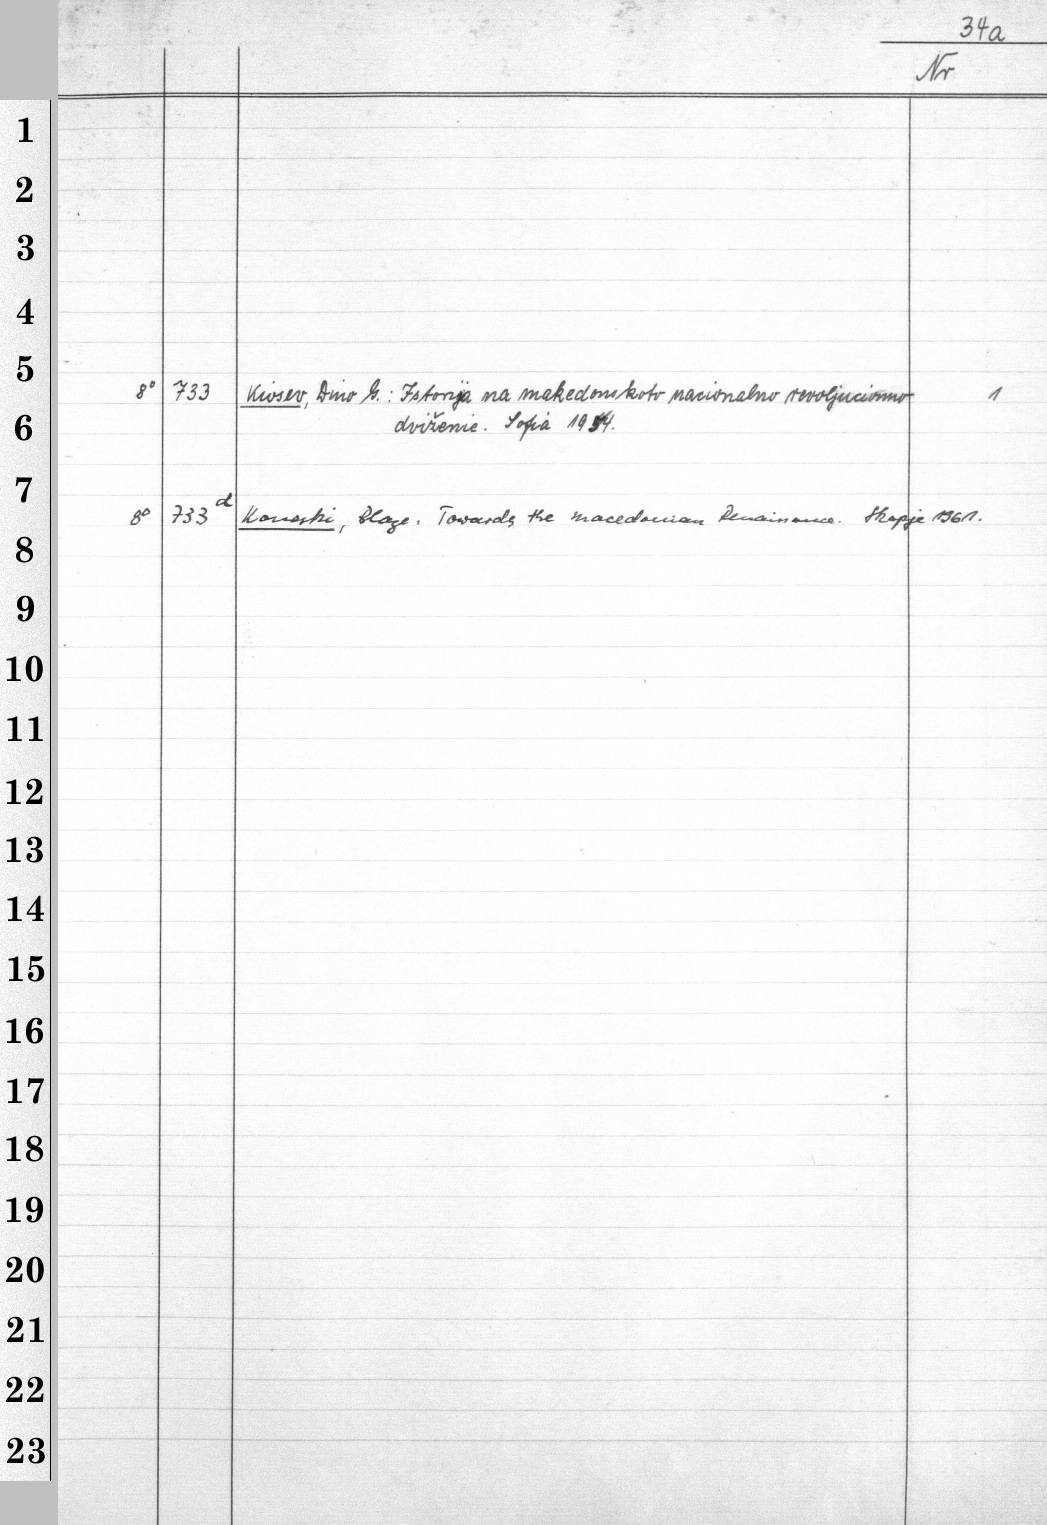 34a
Nr
1
2
3
4
5
8° 733 Kiosev, Dino G.: Istorija na makedonskoto nacionalno revoljucionno 1
6
dviženie. Sofia 1954.
7
8° 733 d Koneski, Blaže. Towards the macedonian Renaissance. Skopje 1961.
8
9
10
11
12
13
14
15
16
17
18
19
20
21
22
23